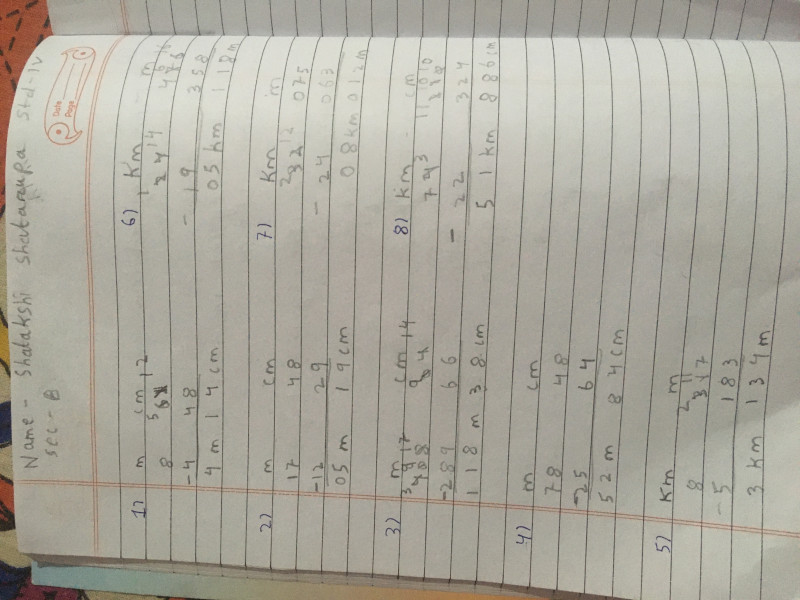 Name - Shatakshi Shatarupa Std-IV
Sec - B
Date
Page
1) m cm
8 62
- 4 48
4 m 14 cm
2) m cm
17 48
- 12 29
05 m 19 cm
3) m cm
- 289 66
118 m 38 cm
4) m cm
78 48
- 25 64
52 m 84 cm
5) Km m
8 317
- 5 183
3 Km 134 m
6) Km m
- 19 358
05 Km 118 m
7) Km m
32 075
- 24 063
08 Km 012 m
8) Km cm
- 22 324
51 Km 886 cm